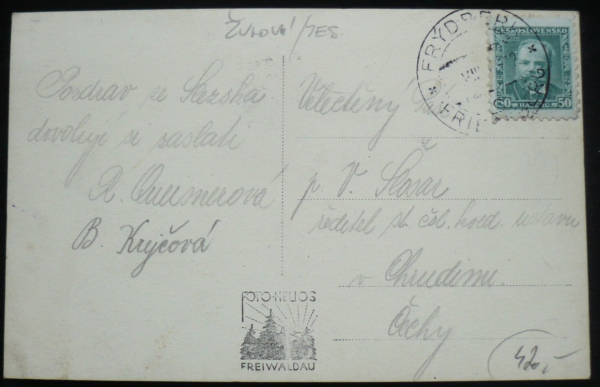 Žulová/JES
Pozdrav ze Slezska
dovoluje si zaslati
R. Ommerová
B. Krejčová
Vctěný
p. V. Slavar
ředitel st. čsl. koed. ústavu
v Chrudimi
Čechy
FRÝDBERK
VIII
FRIED
ČESKOSLOVENSKO
50 50
FOTO-HELIOS
FREIWALDAU
420,-